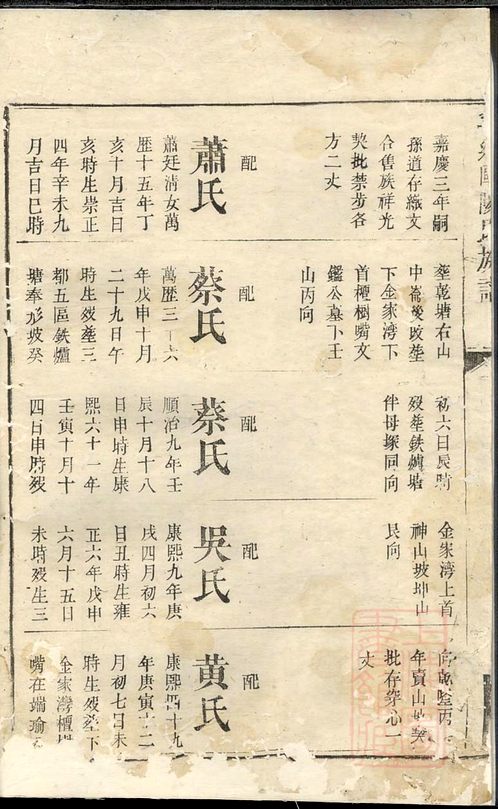 嘉慶三年嗣
孫道存織文
合售族祥光
契批禁步各
方二丈
配
蕭氏
蕭廷清女萬
歷十五年丁
亥十月吉日
亥時生崇正
四年辛未九
月吉日巳時
塟乾塘右山
中崙後改塟
下金家灣下
首檀樹嘴文
鑑公墓下壬
山丙向
配
蔡氏
萬歷三十六
年戊申十月
二十九日午
時生歿塟三
都五區鉄爐
塘奉形坡癸
初六日辰時
歿塟鉄爐塘
伴母塚同向
配
蔡氏
順治九年壬
辰十月十八
日申時生康
熙六十一年
壬寅十月十
四日申時歿
金家灣上首
神山坡坤山
艮向
配
吳氏
康熙九年庚
戌四月初六
日丑時生雍
正六年戊申
六月十五日
未時歿生三
向
年寅山
契
批存穿心一
丈
配
黃氏
康熙四十九
年庚寅十二
月初七日未
時生歿塟下
金家灣檀
嘴在端瑜